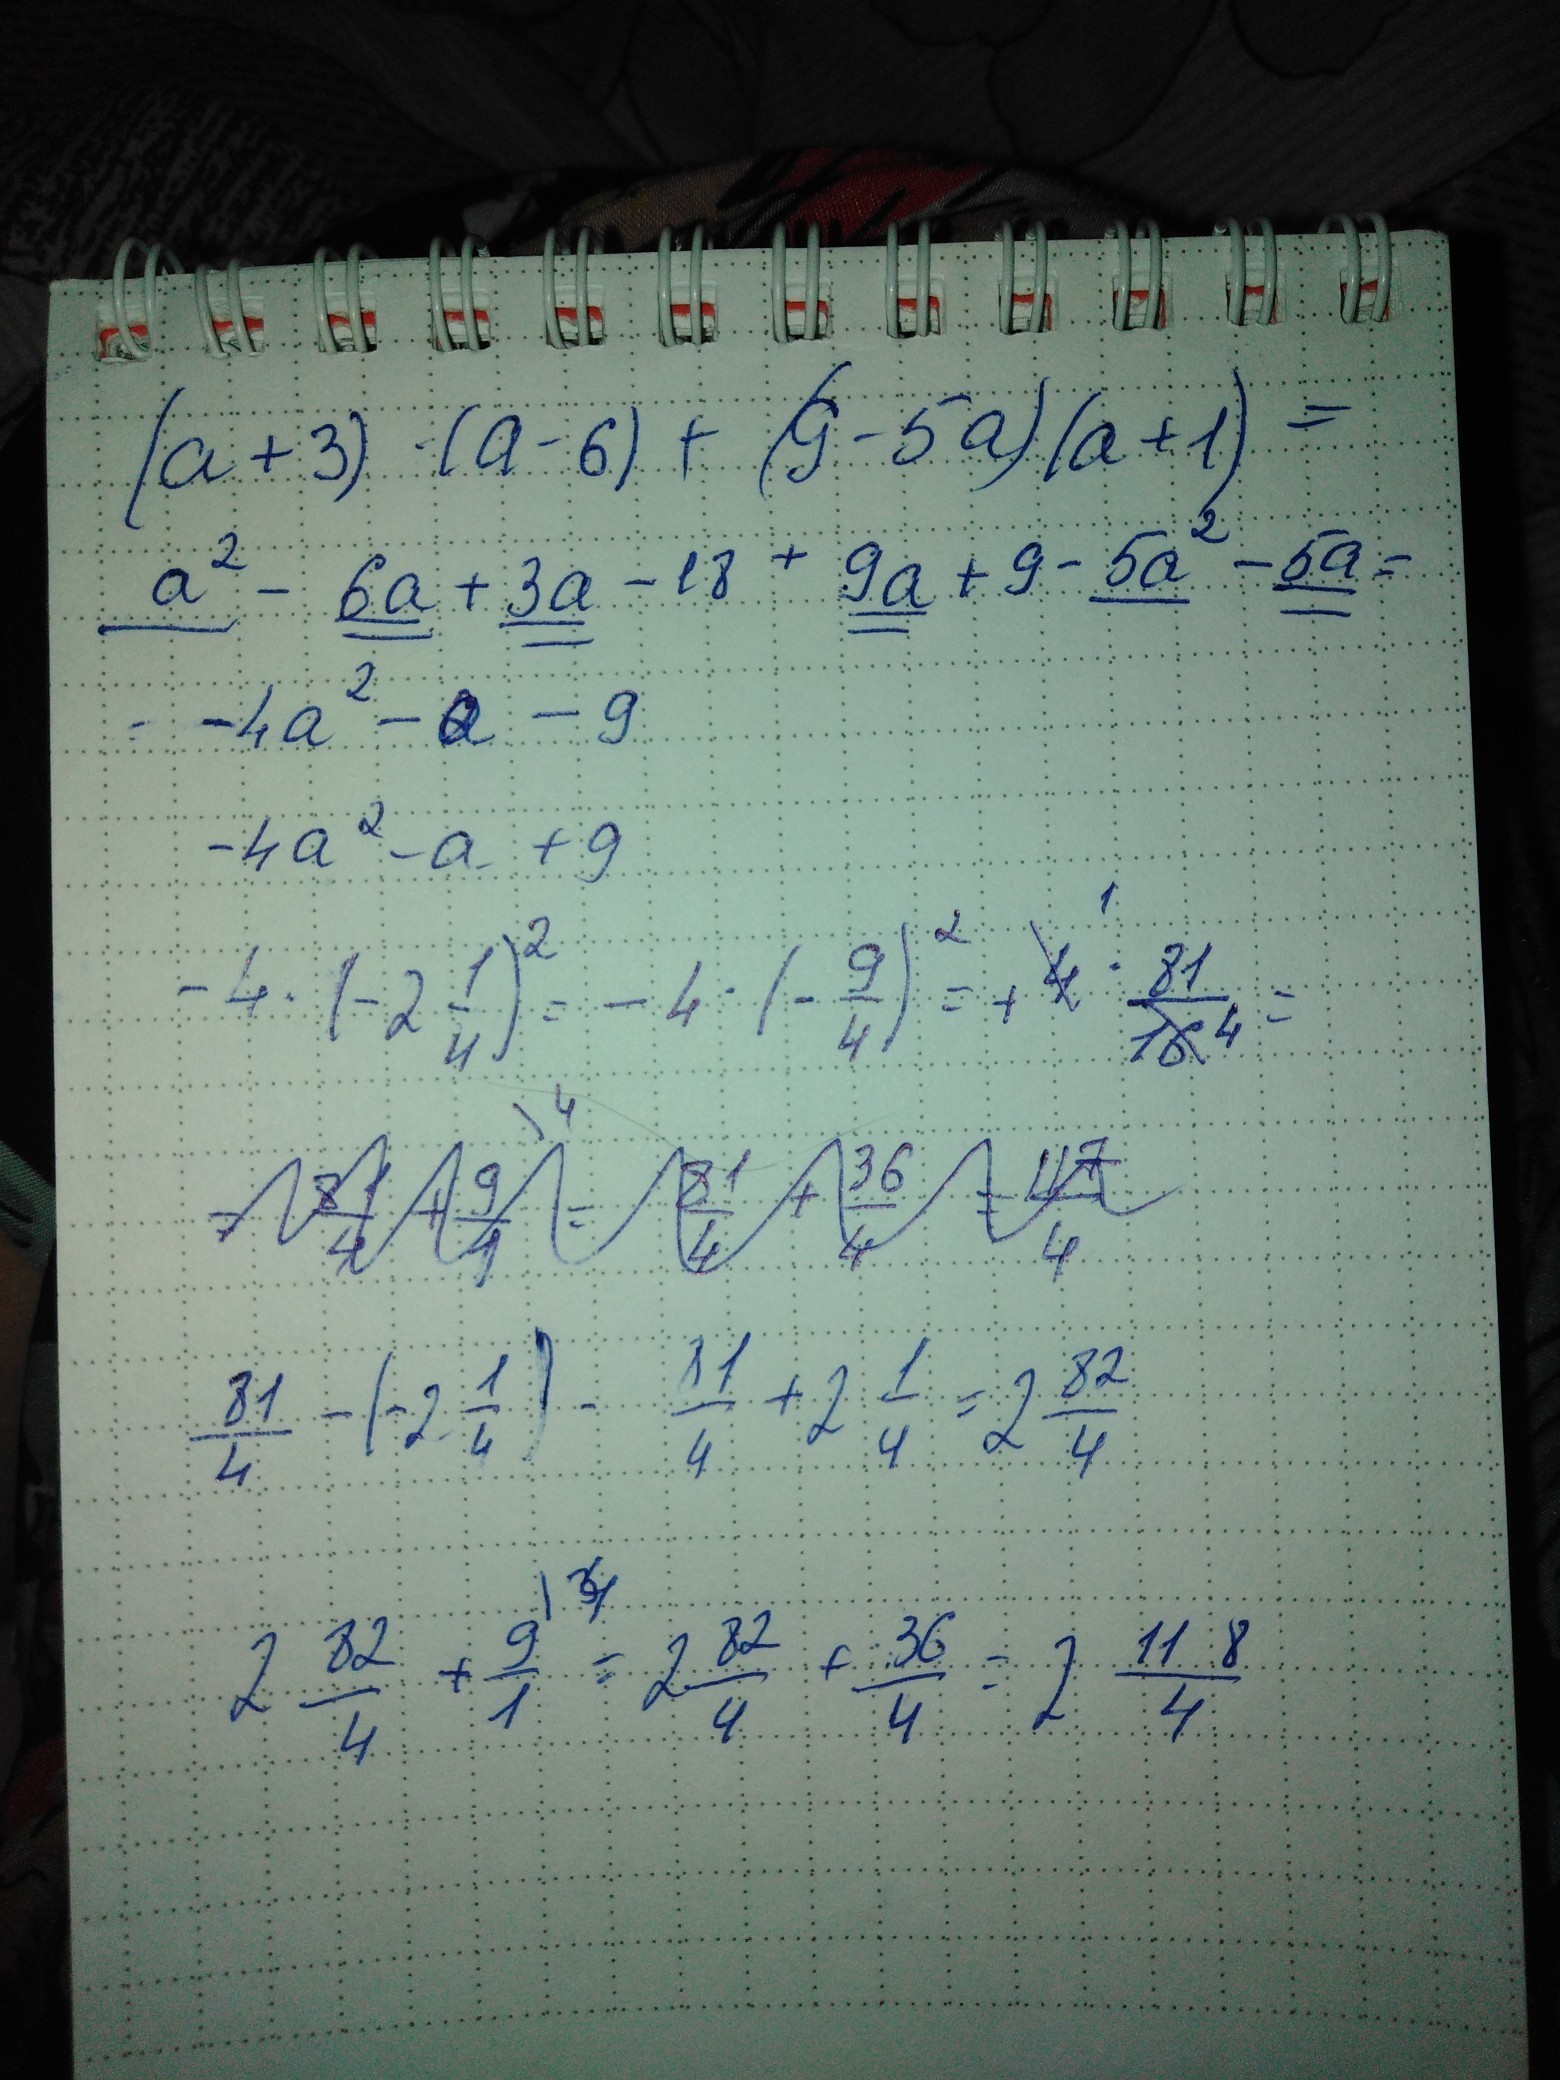 (a + 3) · (a - 6) + (9 - 5a)(a + 1) =
a² - 6a + 3a - 18 + 9a + 9 - 5a² - 5a =
- -4a² - a - 9
-4a² - a + 9
-4 · (-2 1/4)² = -4 · (-9/4)² = + 4 1 · 81/16 4 =
= 81/4 + 9/1 \ 4 = 81/4 + 36/4 = 117/4
81/4 - (-2 1/4) - 81/4 + 2 1/4 = 2 82/4
2 82/4 + 9/1 \ = 2 82/4 + 36/4 = 2 118/4